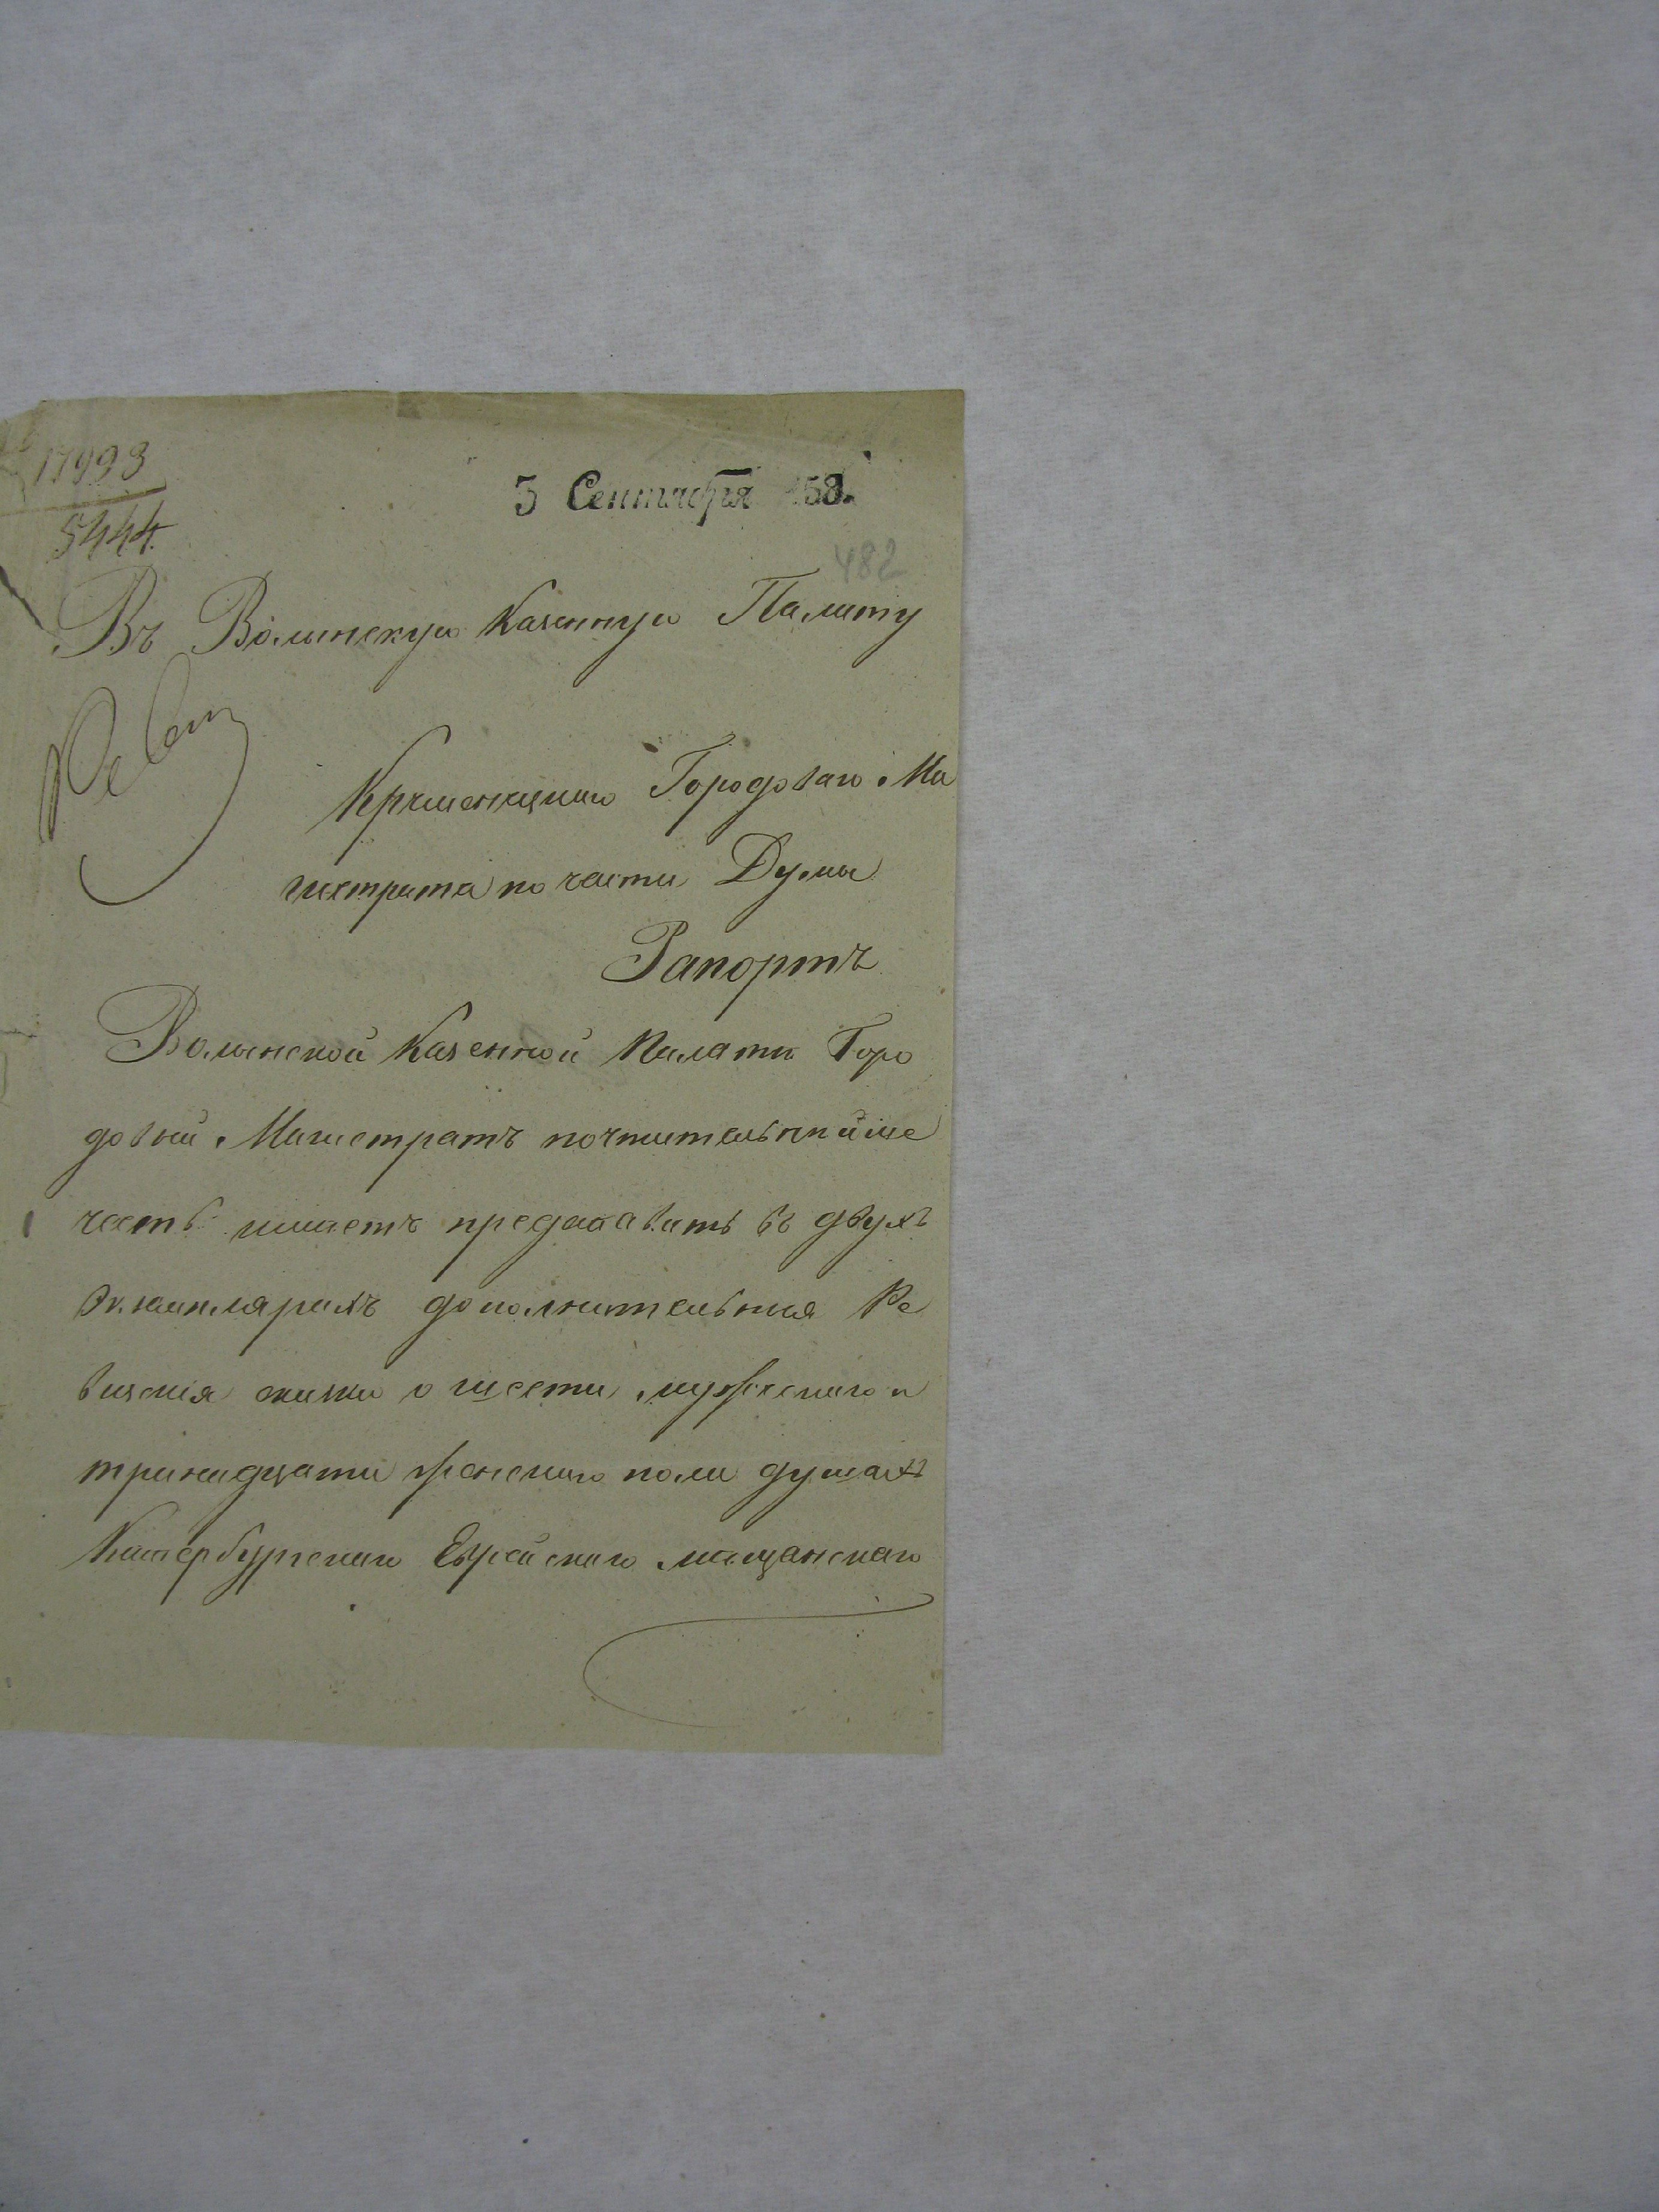 17993
5444.
3 Сентября 858.
482
Въ Волынскую Казенную Палату
Кременецкаго Городоваго Ма
гистрата по части Думы
Рапортъ
Волынской Казенной Палатѣ Горо
довый Магистратъ почтительнѣйше
честь имѣетъ представить въ двухъ
экземплярахъ дополнительныя Ре
визскія сказки о шести мужескаго и
тринадцати женскаго пола душахъ
Катербургскаго Еврейскаго мѣщанскаго